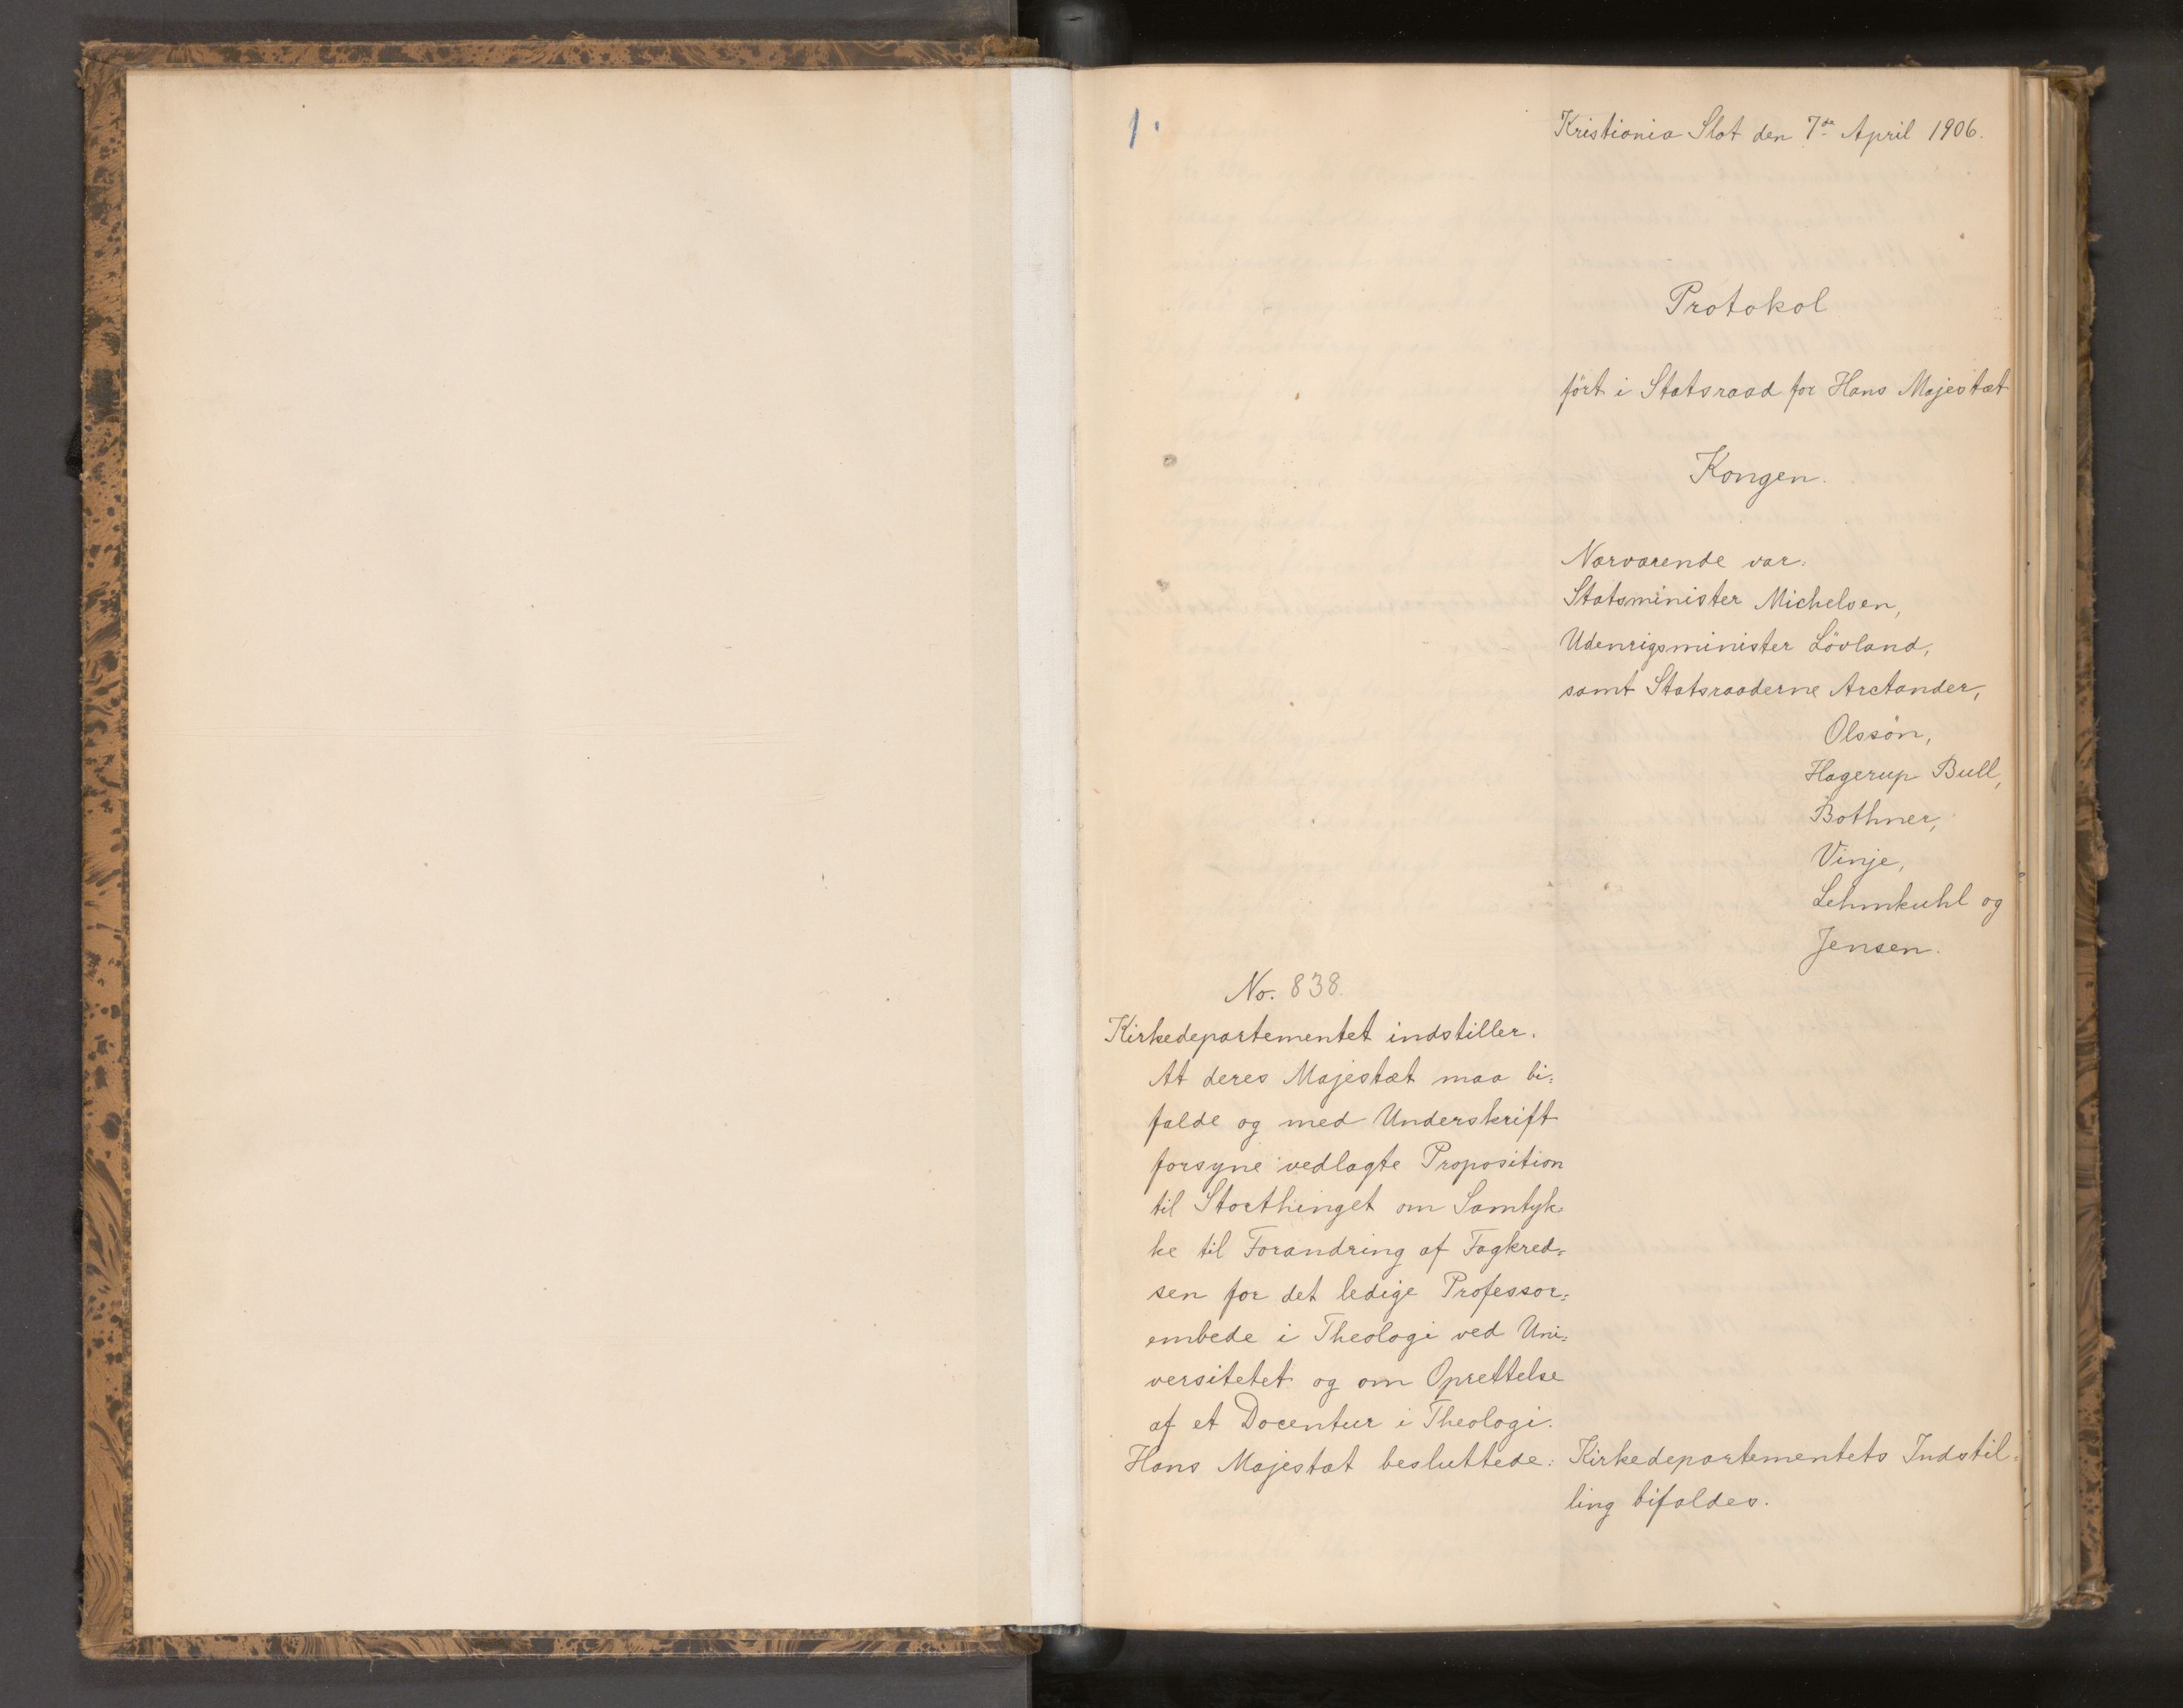 1.
Kristiania Slot den 7de April 1906.
Protokol
ført i Statsraad for Hans Majestæt
Kongen.
Nærværende var:
Statsminister Michelsen,
Udenrigsminister Lövland,
samt Statsraaderne Arctander,
Olssøn,
Hagerup Bull,
Bothner,
Vinje,
Lehmkuhl og
Jensen.
No. 838.
Kirkedepartementet indstiller.
At deres Majestæt maa bi-
falde og med Underskrift
forsyne vedlagte Proposition
til Storthinget om Samtyk-
ke til Forandring af Fagkred-
sen for det ledige Professor-
embede i Theologi ved Uni-
versitetet og om Oprettelse
af et Docentur i Theologi.
Hans Majestæt besluttede: Kirkedepartementets Indstil-
ling bifaldes.